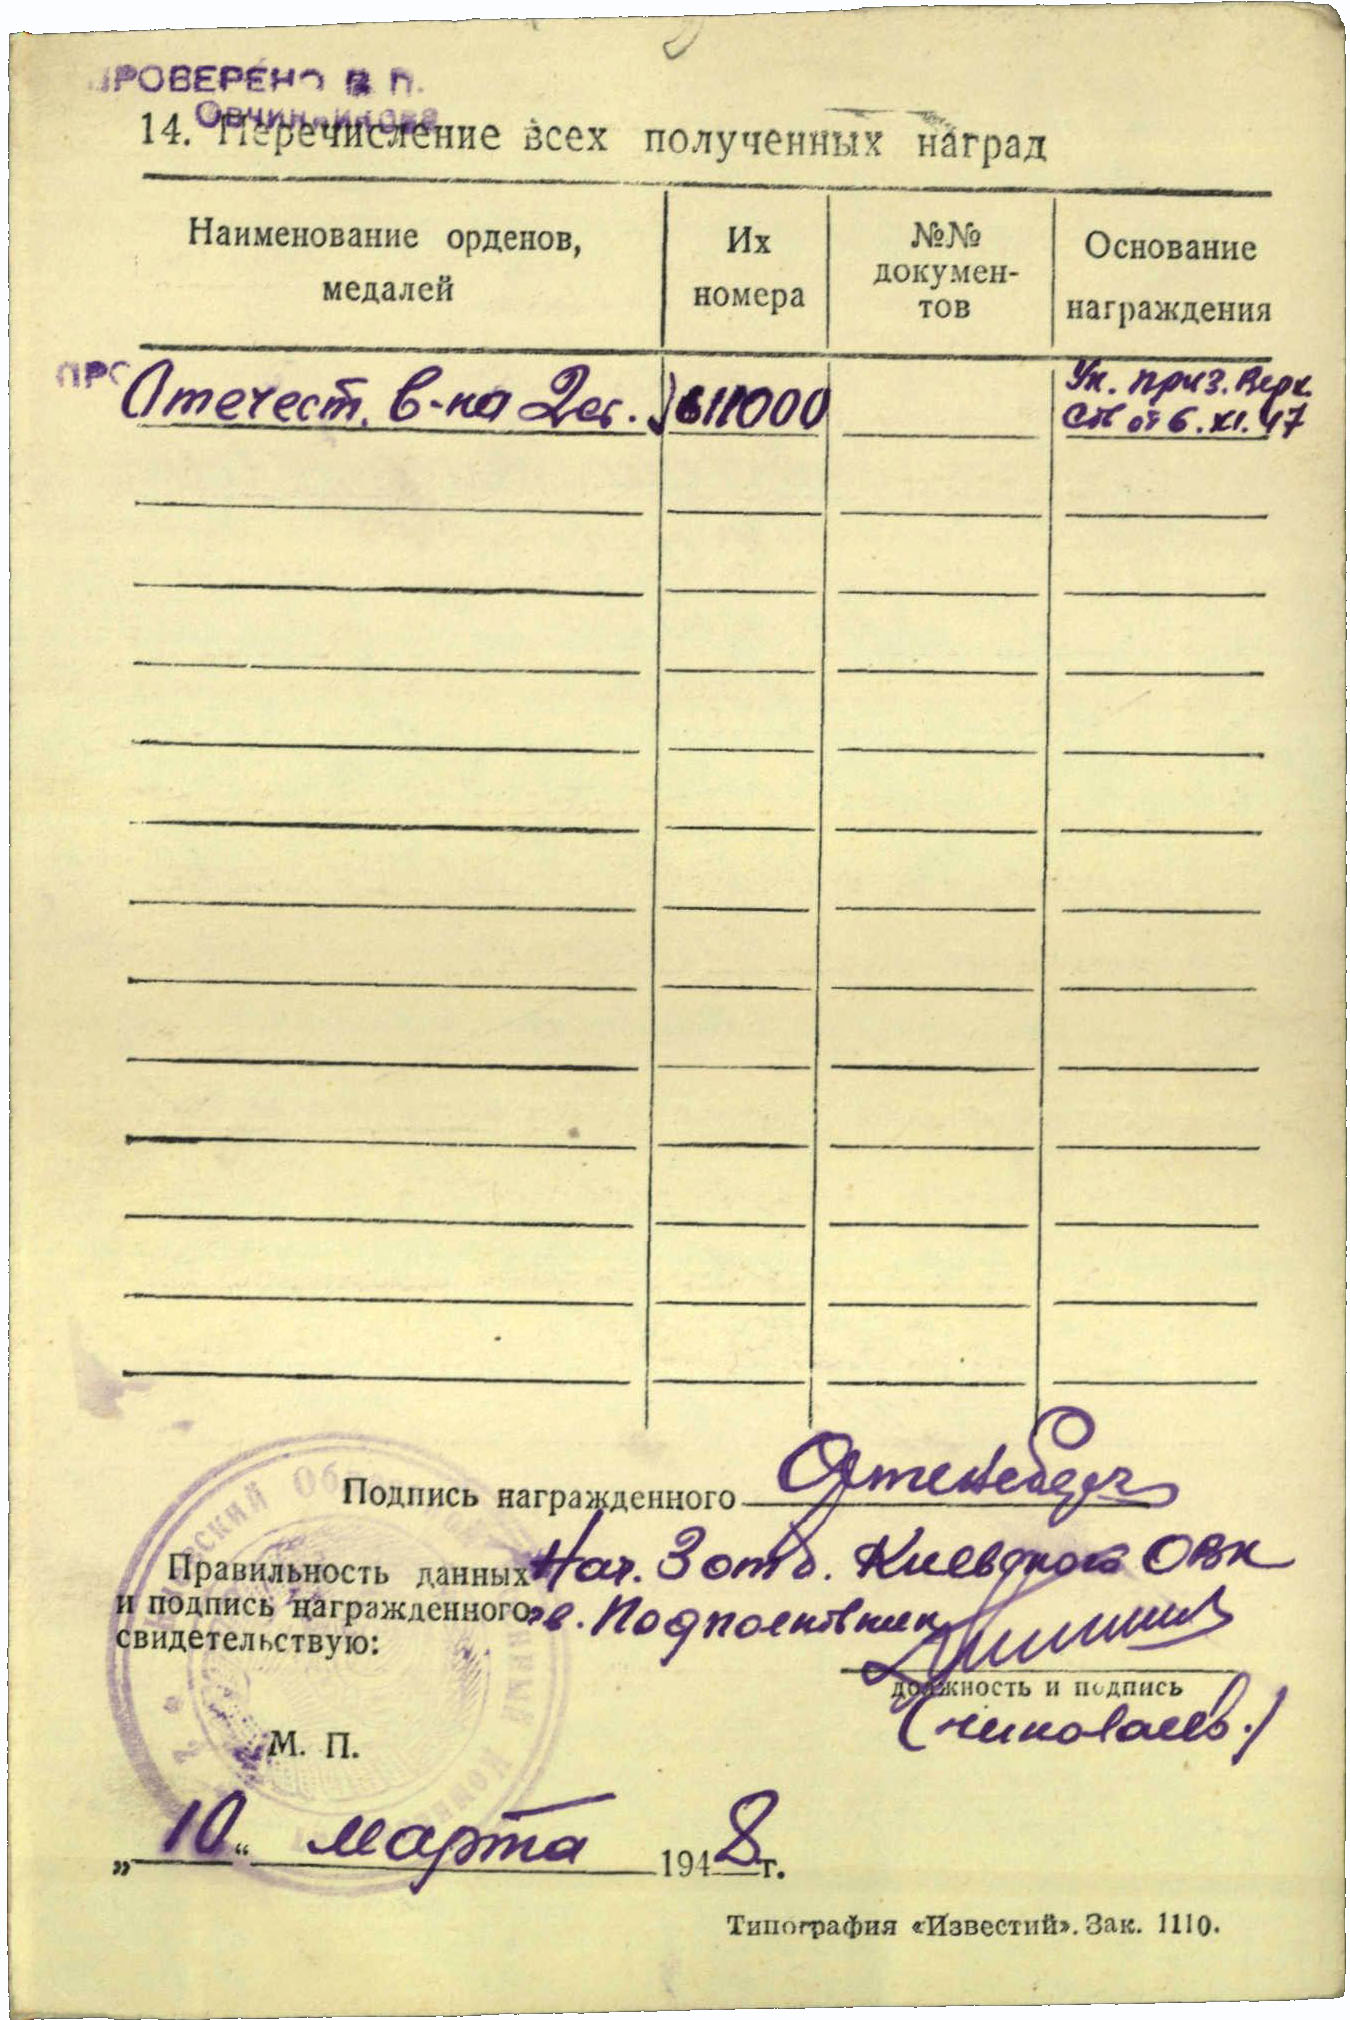 ПРОВЕРЕНО В П.
Овчинникова
14. Перечисление всех полученных наград
Наименование орденов, медалей
Их номера
№№ докумен-тов
Основание награждения
ПРО
Отечест. в-на 2 ст.
611000
Ук. през. Верх.
Св от 6. XI. 47
Подпись награжденного
Правильность данных Нач. 3 отд. Киевского ОВК
и подпись награжденного гв. Подполковник
свидетельствую:
должность и подпись
(Николаев.)
М. П.
„10“ марта 1948 г.
Типография «Известий». Зак. 1110.